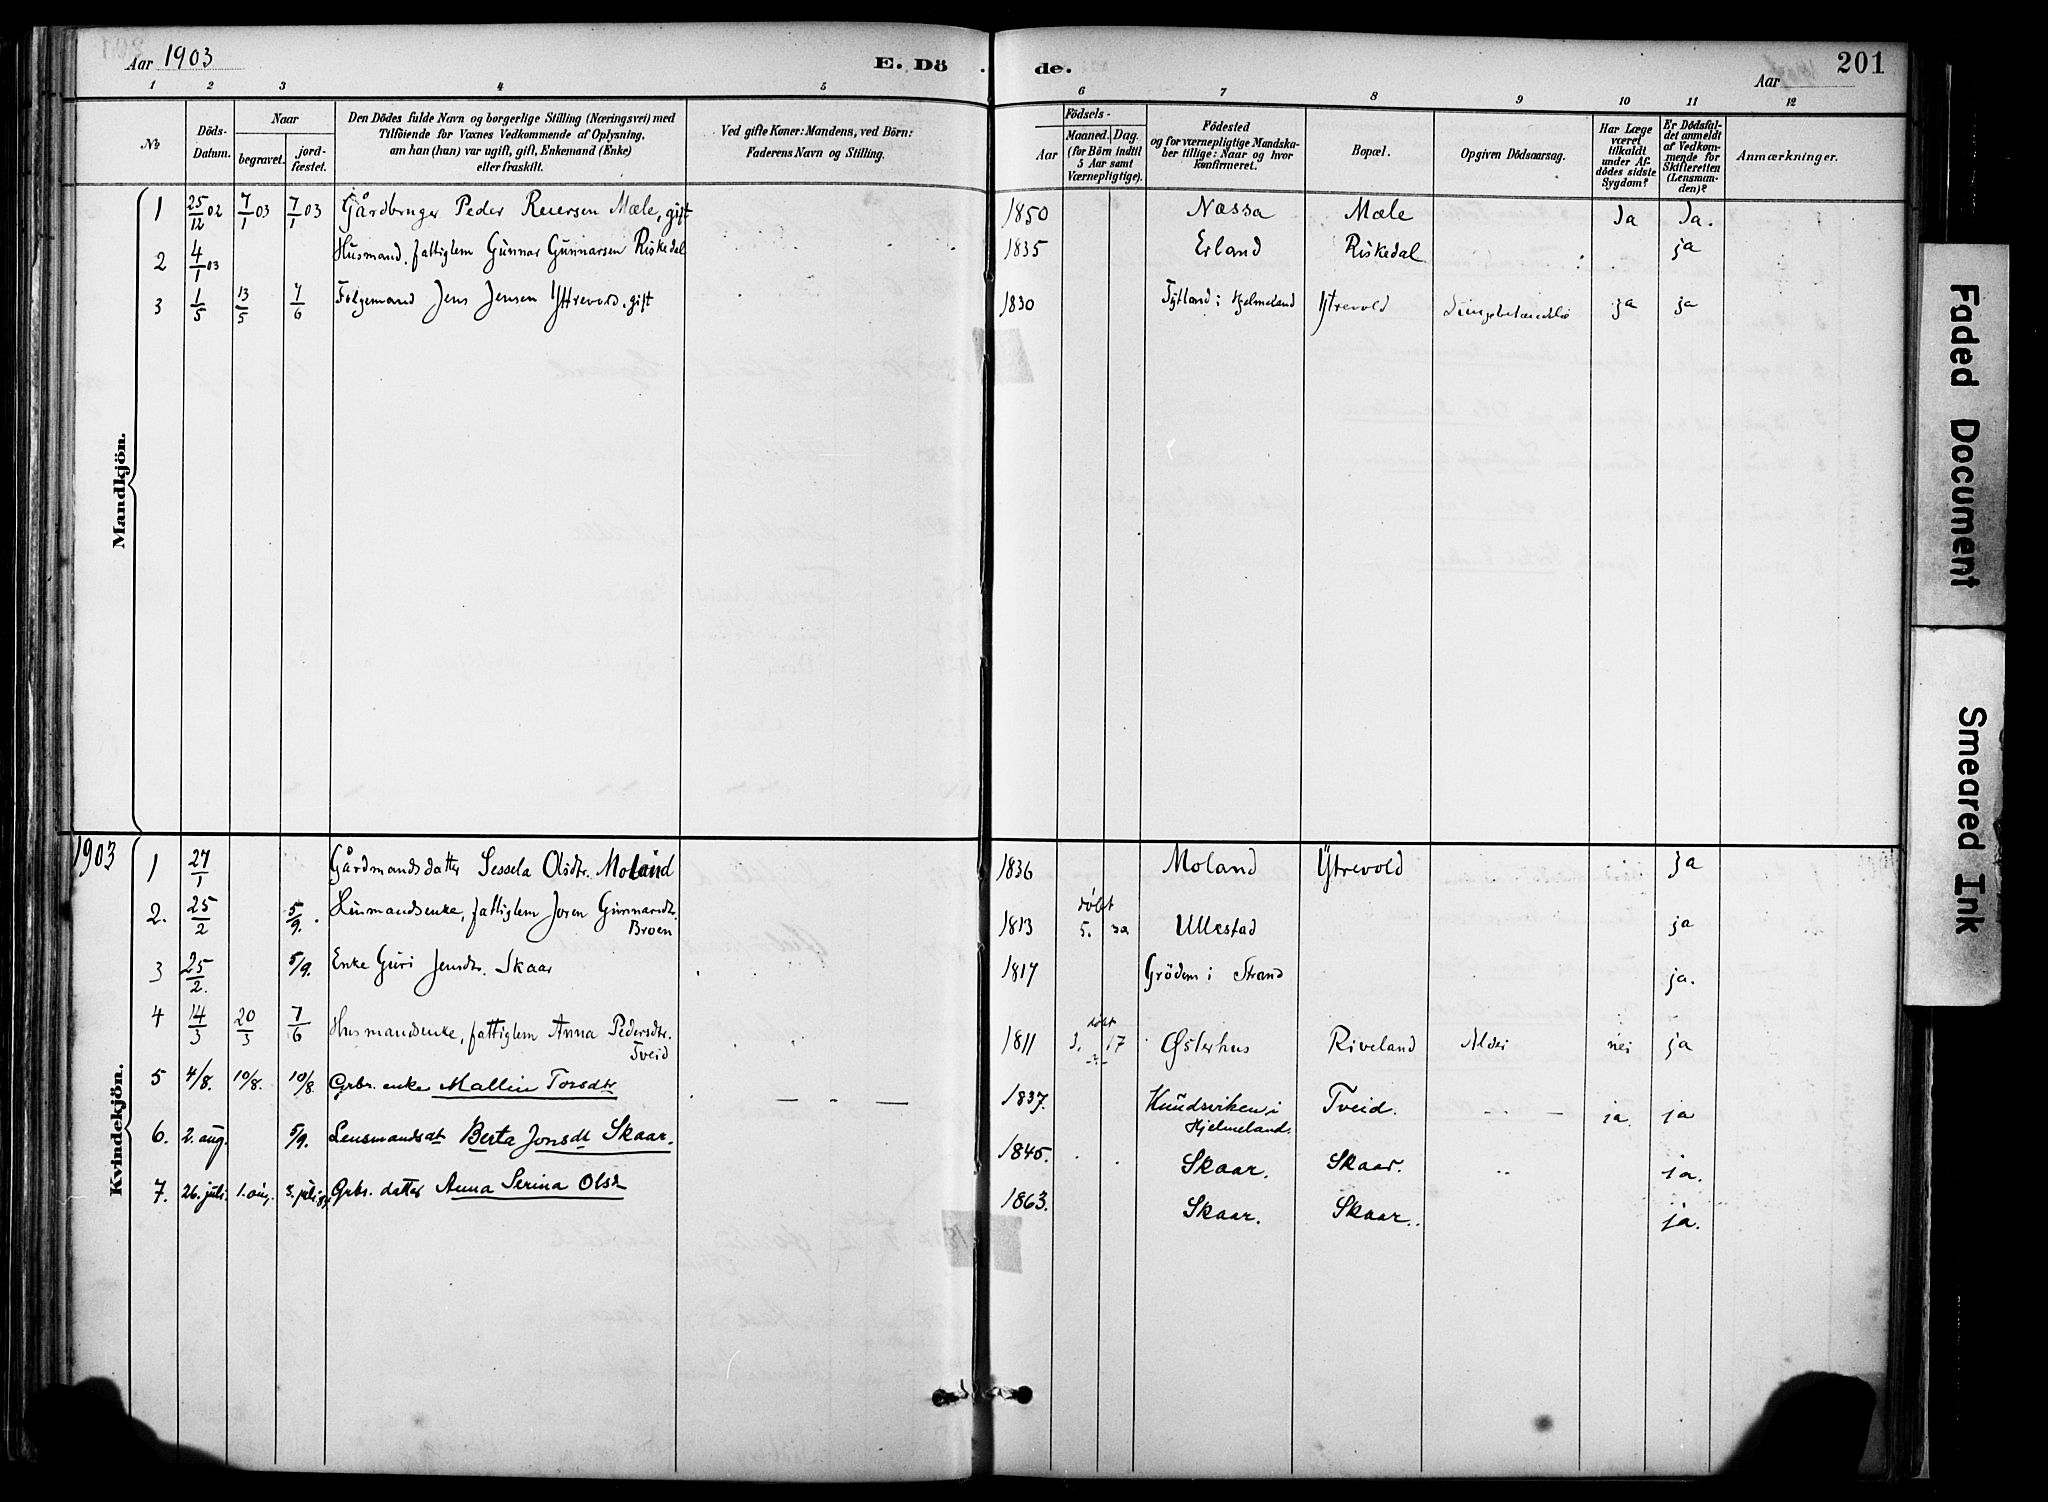 Aar 1903 E. Dö de. Aar 201
1 2 3 4 5 6 7 8 9 10 11 12
№
Döds-Datum.
Naar
begravet.
jord-fæstet.
Den Dödes fulde Navn og borgerlige Stilling (Næringsvei) med
Tilföiende for Voxnes Vedkommende af Oplysning,
om han (hun) var ugift, gift, Enkemand (Enke)
eller fraskilt.
Ved gifte Koner: Mandens, ved Börn:
Faderens Navn og Stilling.
Födsels-
Aar
Maaned. Dag.
(for Börn indtil
5 Aar samt
Værnepligtige).
Födested
og for værnepligtige Mandska-
ber tillige: Naar og hvor
konfirmeret.
Bopæl.
Opgiven Dödsaarsag.
Har Læge
været
tilkaldt
under Af-
dödes sidste
Sygdom?
Er Dödsfal-
det anmeldt
af Vedkom-
mende for
Skifteretten
(Lensman-
den)?
Anmærkninger.
Mandkjön.
1 25/12 02 7/1 03 7/1 03 Gårdbruger Peder Reiersen Mæle, gift 1850 Næssa Mæle Ja Ja.
2 4/1 03 Husmand, fattiglem Gunnar Gunnarsen Riskedal 1835 Erland Riskedal ja
3 1/5 13/5 7/6 Folgemand Jens Jensen Ytrevold, gift 1830 Tytland i Hjelmeland Ytrevold Lungebetændelse ja ja
Kvindekjön.
1903
1 27/1 Gårdmandsdatter Sessela Olsdtr. Moland 1836 Moland Ytrevold ja
2. 25/2 5/9. Husmandsenke, fattiglem Joren Gunnarsdtr. Broen 1813 döbt 5. 30 Ullestad ja
3 25/2. 5/9. Enke Guri Jensdtr. Skaar 1817 Grödem i Strand ja.
4 14/3 20/3 7/6 Husmandsenke, fattiglem Anna Pedersdtr. Tveid 1811 döbt 3. 17 Østerhus Riveland Alder nei ja
5 4/8. 10/8. 10/8. Grbr. enke Mallin Torsdtr 1837. Knudsviken i Hjelmeland. Tveid. ja. ja
6. 2. aug. 5/9. Lensmandsdt Berta Jonsdt Skaar. 1845. Skaar. Skaar. ja.
7. 26. juli. 1. aug. Grbr. datter Anna Serina Olsd 1863. Skaar. Skaar. ja.
Faded Document
Smeared Ink